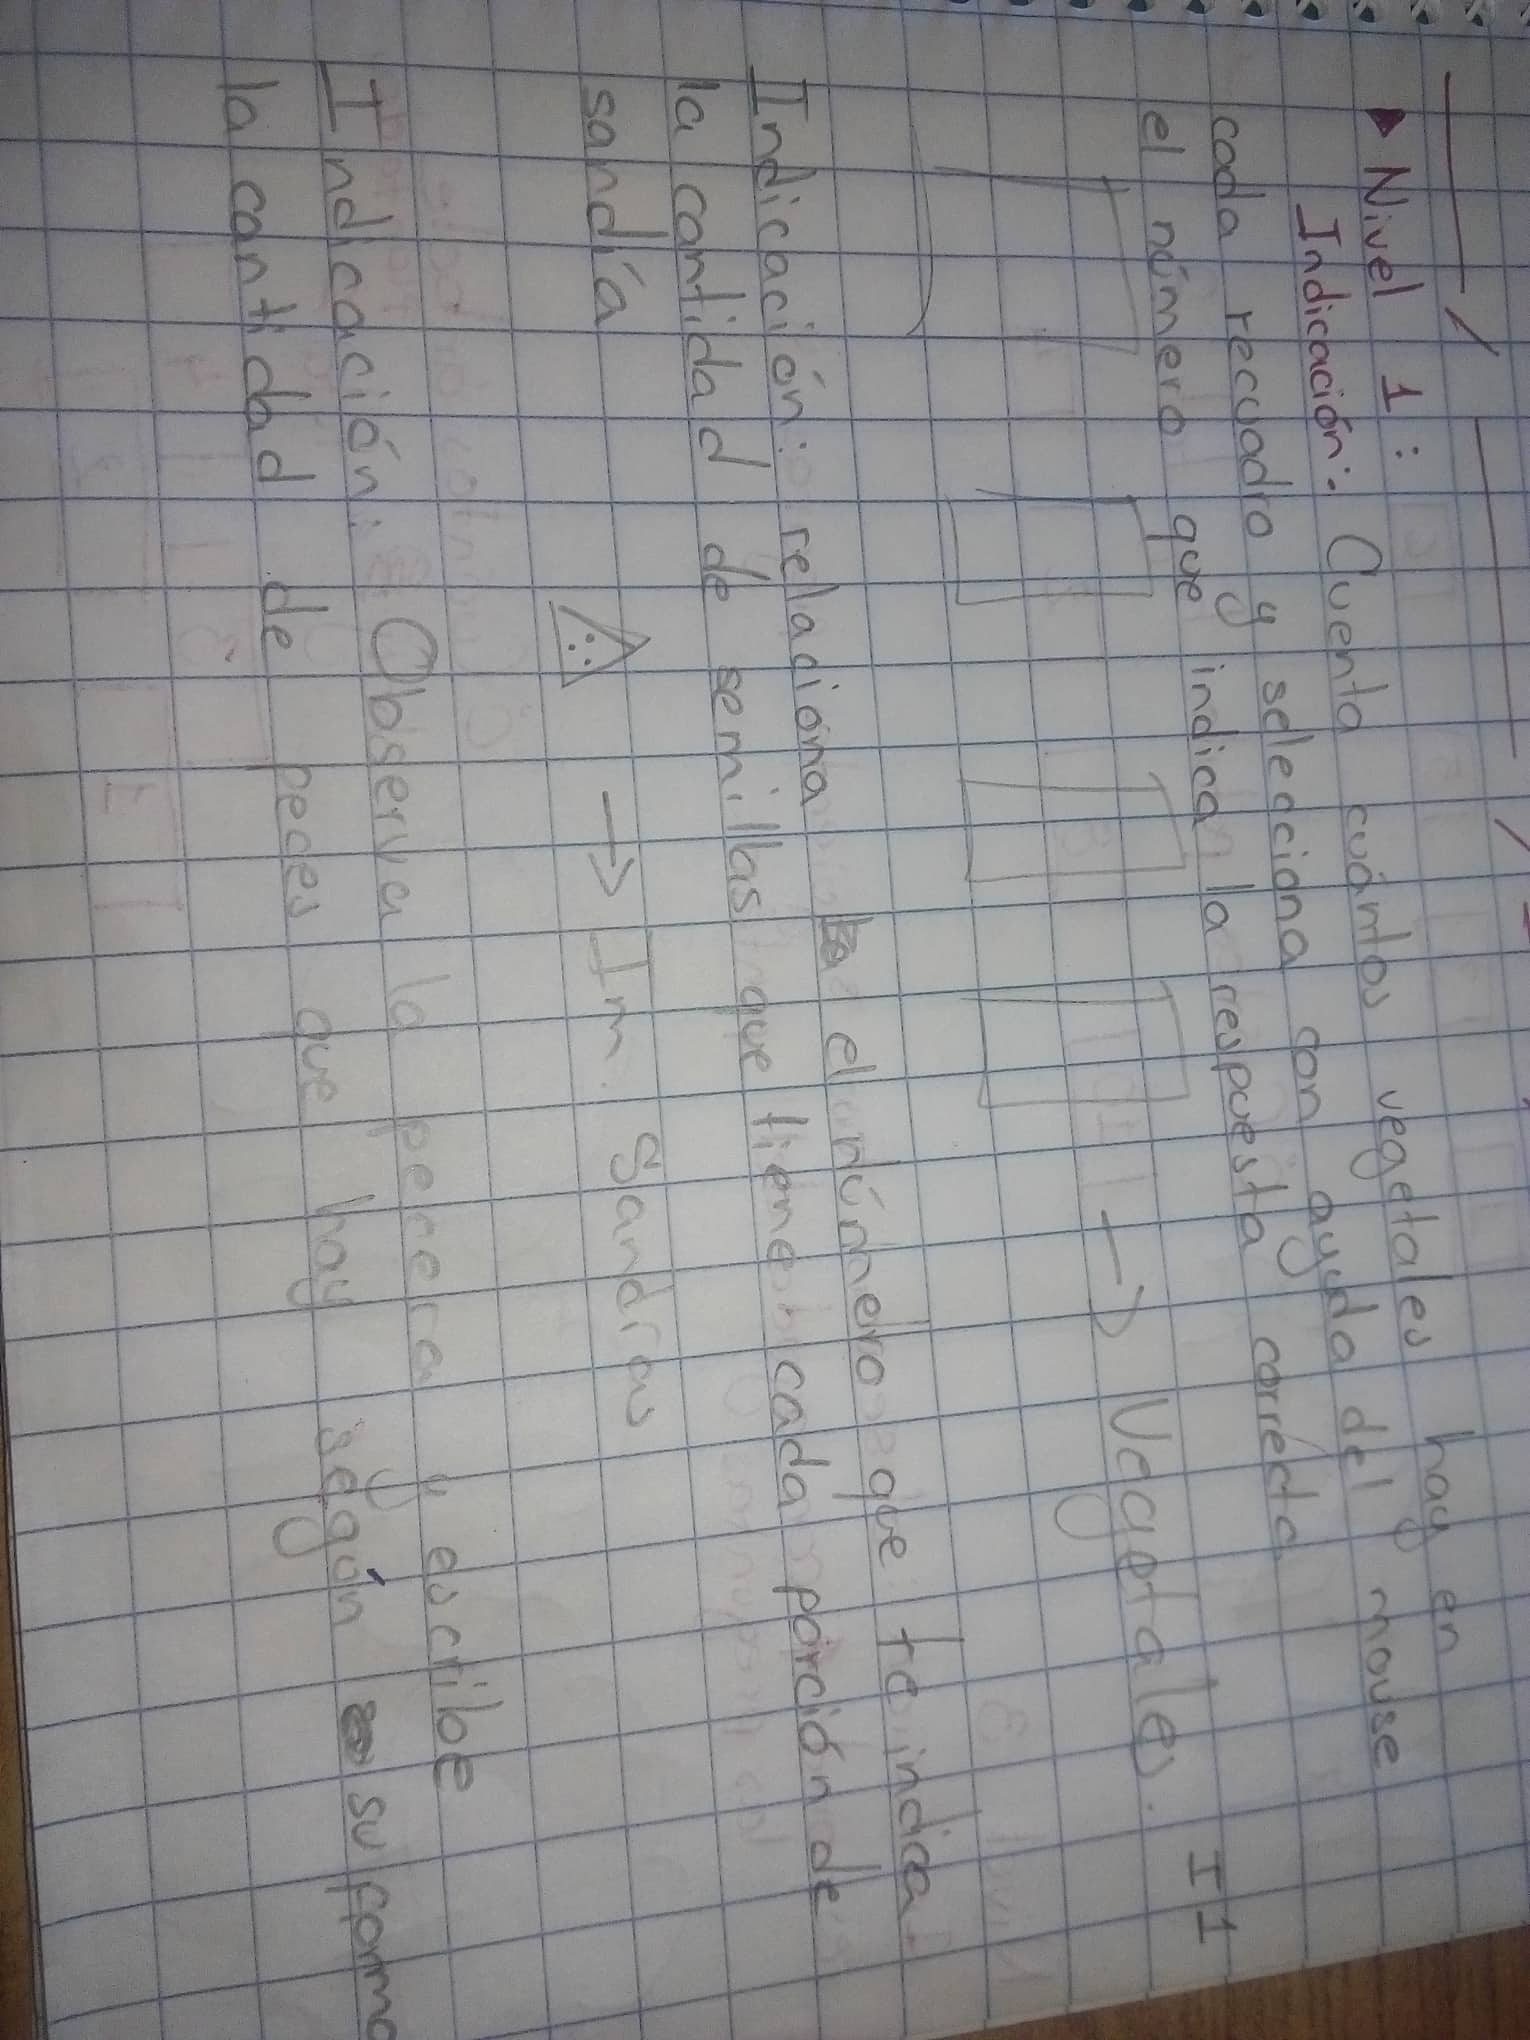 ▸ Nivel 1:
Indicación: Cuenta cuántos vegetales hay en
cada recuadro y selecciona con ayuda del mouse
el número que indica la respuesta correcta
→ Vegetales. I1
Indicación: relaciona el número que te indica
la cantidad de semillas que tiene cada porción de
sandía
→ Im. Sandías
Indicación: Observa la pecera y escribe
la cantidad de peces que hay según su forma